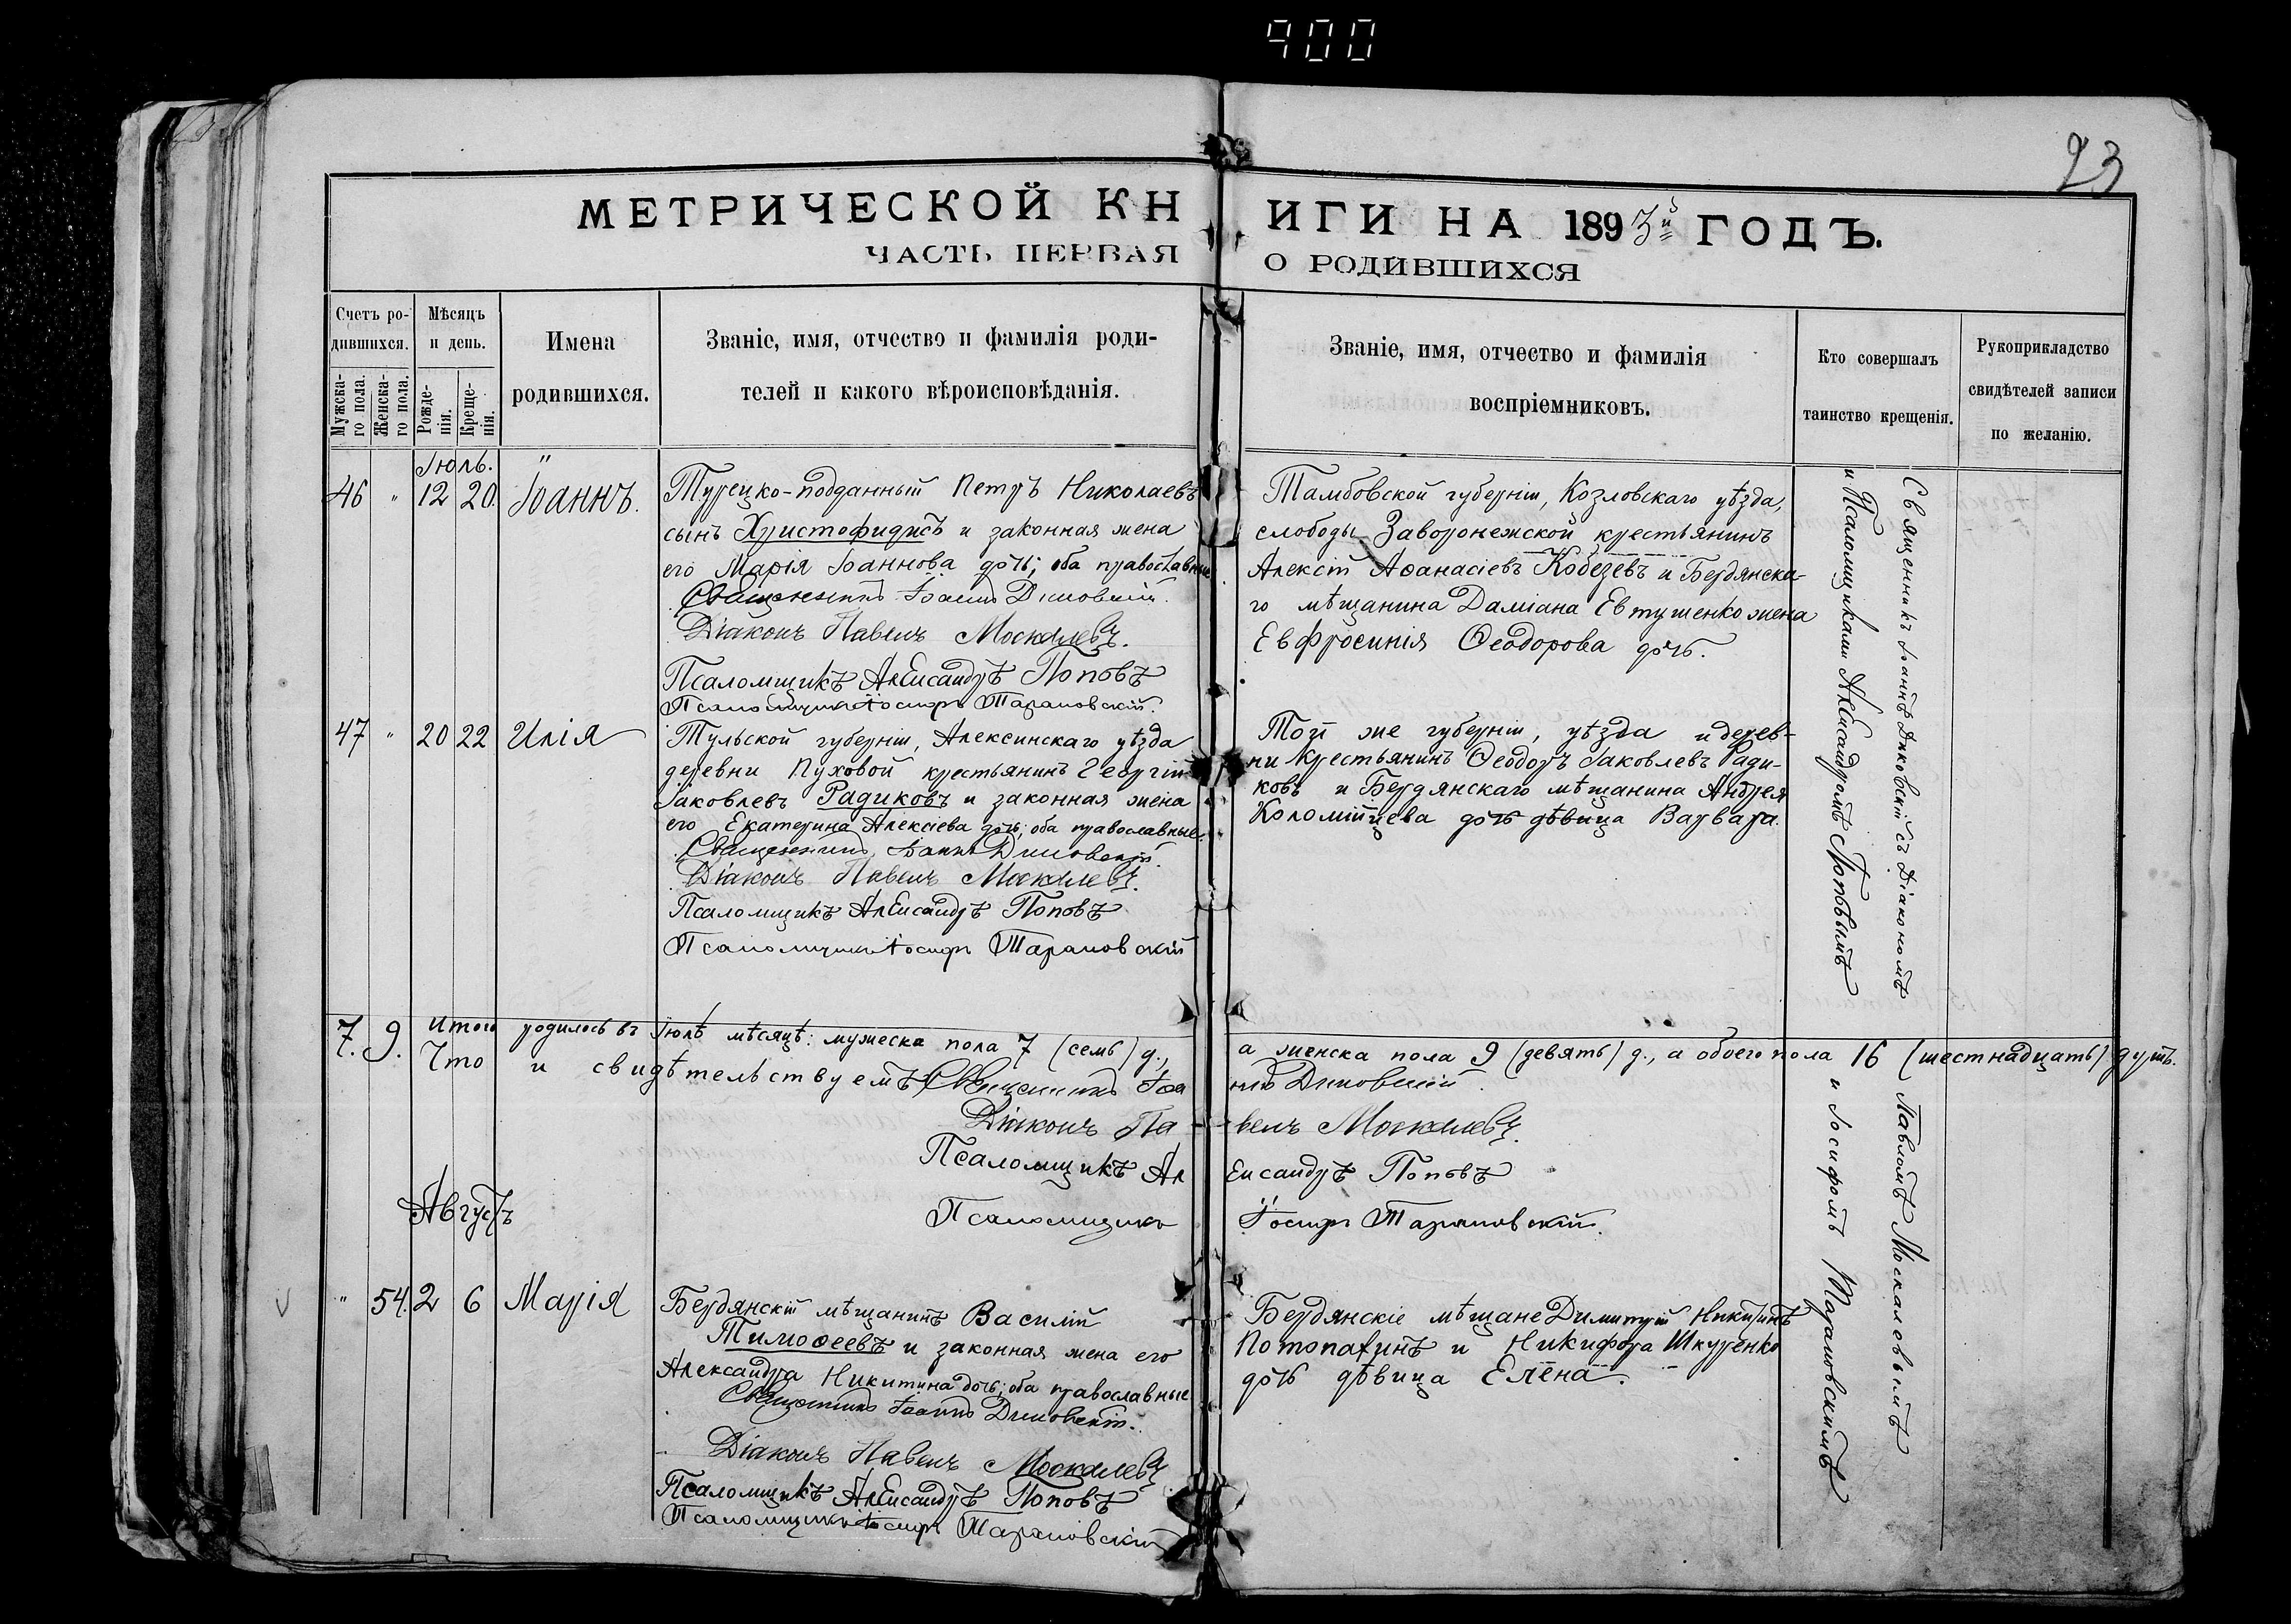 900
23
МЕТРИЧЕСКОЙ КНИГИ НА 1893й ГОДЪ.
ЧАСТЬ ПЕРВАЯ О РОДИВШИХСЯ
Счетъ ро-
дившихся.
Мужска-
го пола.
Женска-
го пола.
Мѣсяцъ
и день.
Рожде-
нія.
Креще-
нія.
Имена
родившихся.
Званіе, имя, отчество и фамилія роди-
телей и какого вѣроисповѣданія.
Званіе, имя, отчество и фамилія
воспріемниковъ.
Кто совершалъ
таинство крещенія.
Рукоприкладство
свидѣтелей записи
по желанію.
Іюль. "
46 " 12 20. Іоаннъ.
Турецко-подданный Петръ Николаевъ
сынъ Христофидисъ и законная жена
его Марія Іоаннова дочь; оба православные
Священникъ Іоаннъ Диковскій.
Діаконъ Павелъ Москалевъ.
Псаломщикъ Александръ Поповъ
Псаломщикъ Іосифъ Тарановскій.
Тамбовской губерніи, Козловскаго уѣзда,
слободы Заворонежской крестьянинъ
Алексій Аѳанасіевъ Кобезевъ и Бердянска-
го мѣщанина Даміана Евтушенко жена
Евфросинія Ѳеодорова дочь.
47 " 20 22 Илія
Тульской губерніи, Алексинскаго уѣзда
деревни Пуховой крестьянинъ Георгій
Іаковлевъ Радиковъ и законная жена
его Екатерина Алексіева дочь; оба православные.
Священникъ Іоаннъ Диковскій.
Діаконъ Павелъ Москалевъ.
Псаломщикъ Александръ Поповъ
Псаломщикъ Іосифъ Тарановскій
Той же губерніи, уѣзда и дерев-
ни крестьянинъ Ѳеодоръ Іаковлевъ Ради-
ковъ и Бердянскаго мѣщанина Андрея
Коломійцева дочь дѣвица Варвара.
7. 9. Итого родилось въ Іюлѣ мѣсяцѣ: мужеска пола 7 (семь) д., а женска пола 9 (девять) д., а обоего пола 16 (шестнадцать) душъ.
Что и свидѣтельствуемъ Священникъ Іоаннъ Диковскій.
Діаконъ Павелъ Москалевъ.
Псаломщикъ Александръ Поповъ
Псаломщикъ Іосифъ Тарановскій.
Августъ
" 54. 2 6 Марія
Бердянскій мѣщанинъ Василій
Тимоѳеевъ и законная жена его
Александра Никитина дочь; оба православные
Священникъ Іоаннъ Диковскій.
Діаконъ Павелъ Москалевъ
Псаломщикъ Александръ Поповъ
Псаломщикъ Іосифъ Тарановскій
Бердянскіе мѣщане Димитрій Никитинъ
и Никифора Шкуренко
дочь дѣвица Елена.
Священникъ Іоаннъ Диковскій съ Діакономъ Павломъ Москалевымъ
и Псаломщиками Александромъ Поповымъ и Іосифомъ Тарановскимъ